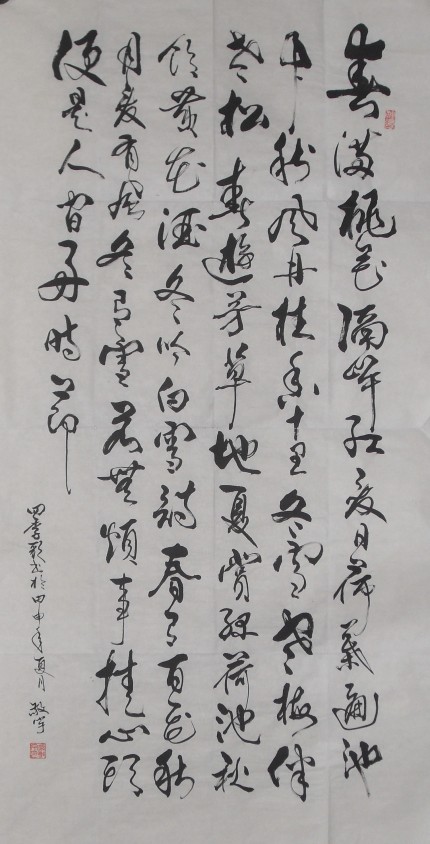 春满桃花隔岸红夏日荷叶遍池
中秋风丹桂香十里冬雪寒梅伴
老松春游芳草地夏赏绿荷池秋
饮黄花酒冬吟白雪诗春有百花秋
月夏有凉风冬有雪若无烦事挂心头
便是人间好时节
四季歌书於甲申年夏月敬宇